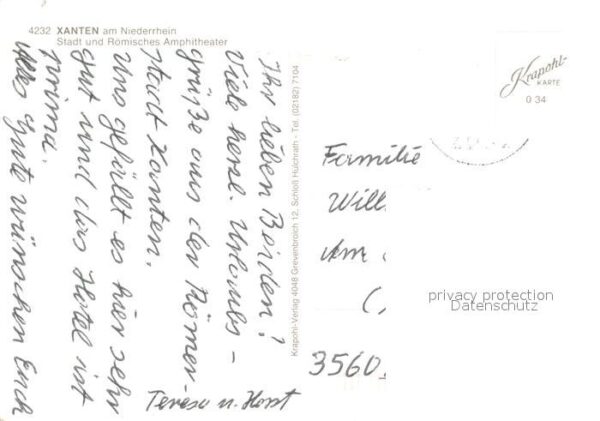 4232 XANTEN am Niederrhein
Stadt und Römisches Amphitheater
Ihr lieben Beiden!
Viele herzl. Urlaubs-
grüße aus der Römer-
stadt Xanten.
Uns gefällt es hier sehr
gut und das Hotel ist
prima.
Alles Gute wünschen Euch
Teresa u. Horst
Krapohl-Verlag 4048 Grevenbroich 12, Schloß Hülchrath - Tel. (02182) 7104
Krapohl-
KARTE
0 34
Familie
Will
Am
3560
privacy protection
Datenschutz